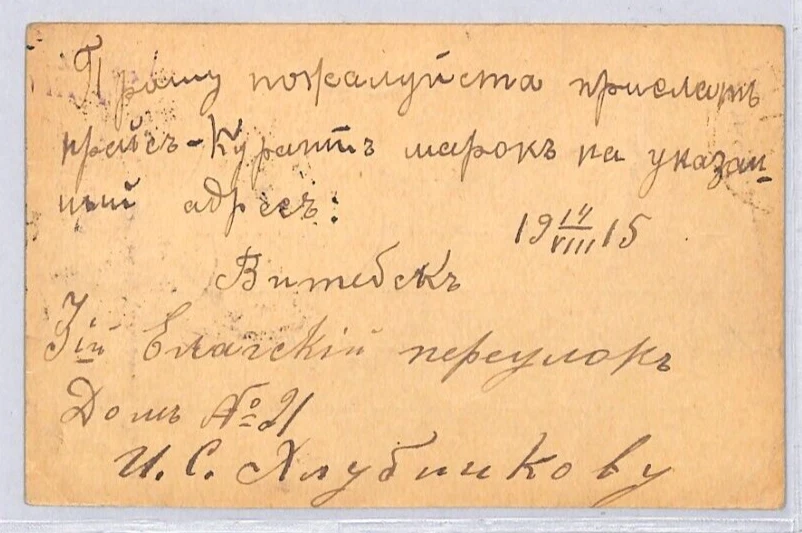 Прошу пожалуйста прислать
прайсъ-Курантъ марокъ на указан-
ный адресъ:
19 14/VIII 15
Витебскъ
3ій Елагскій переулокъ
Домъ № 21
И. С. Хлубникову